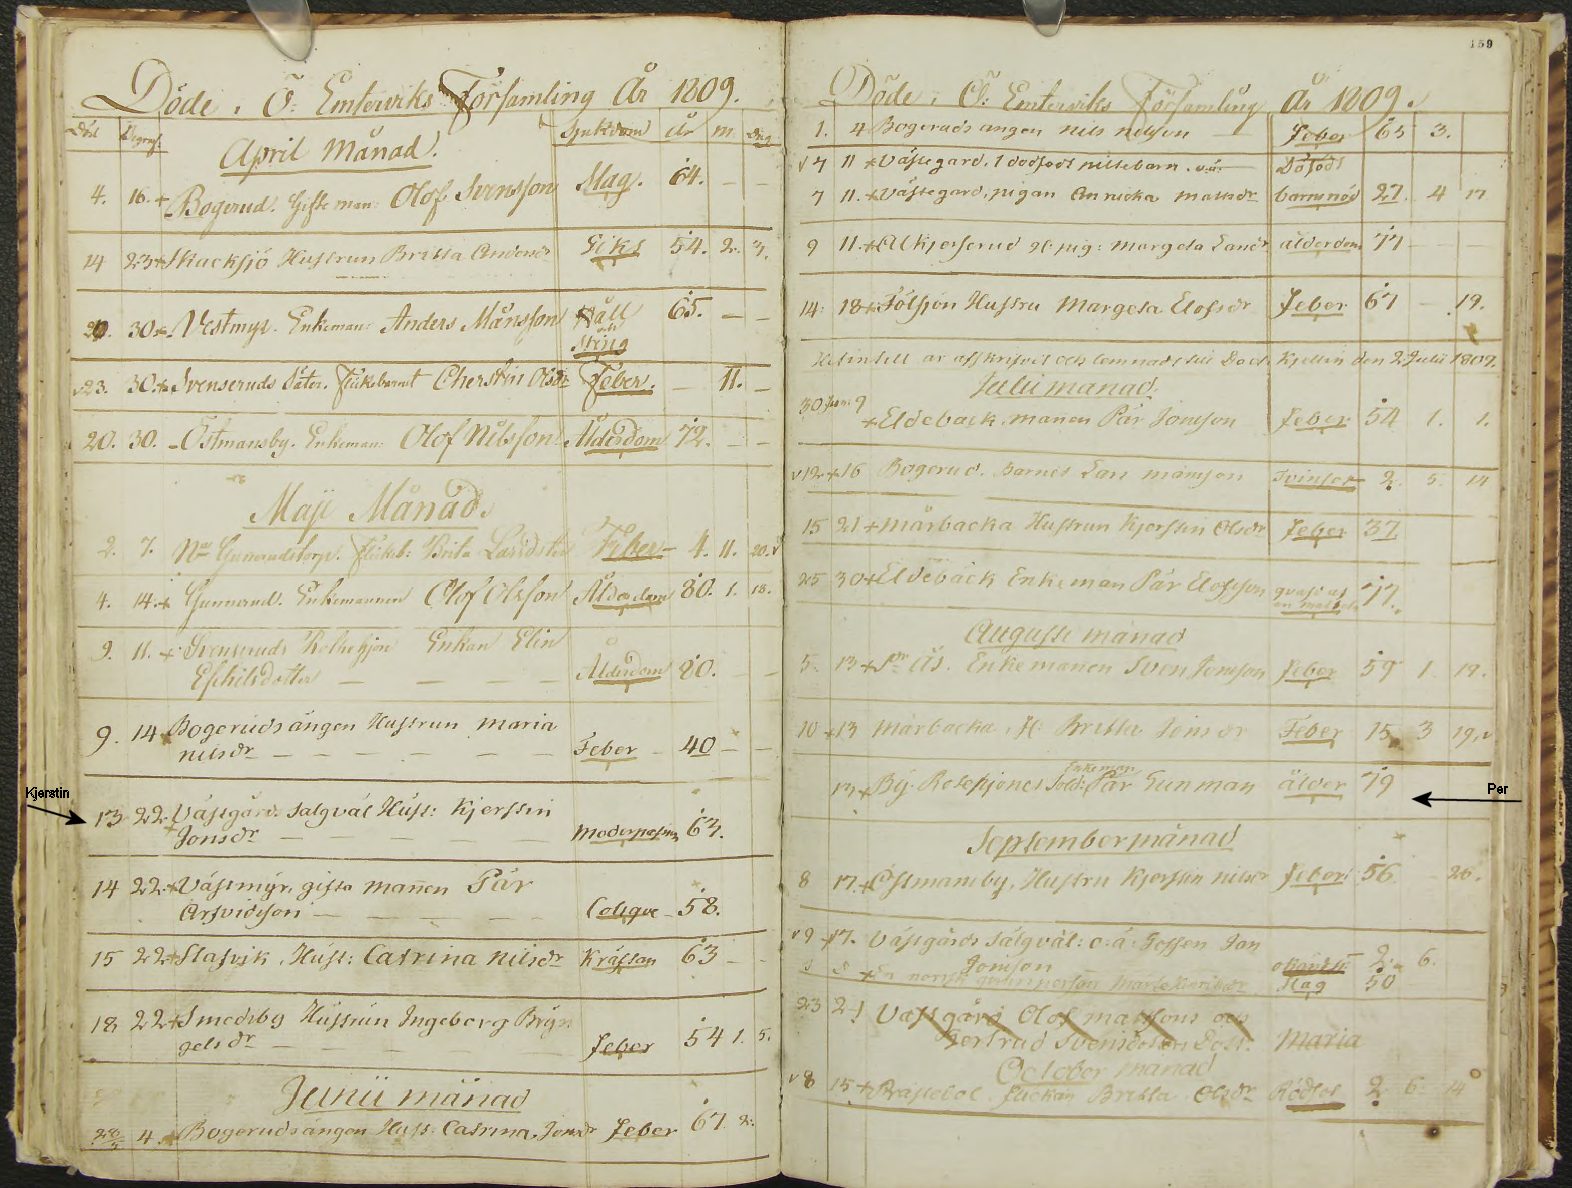 Döde i Ö: Emterviks Församling År 1809.
Död Begraf: Sjukdom År m. dag
April Månad.
4. 16. + Bogerud. Gifte man: Olof Svensson Slag. 64. – –
14 23 + Skacksjö Hustrun Britta Andersdr 54. 2. 3.
20. 30 + Västmyr. Enkeman: Anders Månsson Håll och Sting 65. – –
23. 30. + Svenseruds Säter. Flickebarnet Cherstin Olsdr Feber. – 11. –
20. 30. – Östmansby. Enkeman: Olof Nilsson Ålderdom 72. – –
Maji Månad.
2. 7. Nra Gunnerudstorp. Flickeb: Brita Larsdotter Feber – 4. 11. 20.
4. 14. + Gunnerud. Enkemannen Olof Olsson Ålderdom 80. 1. 18.
9. 11. + Svenseruds Enkan Elin
Eschilsdotter – – – – Ålderdom 80. – –
9. 14 Bogerudsängen Hustrun Maria
nilsdr – – – – – Feber – 40 – –
Kjerstin
13 22 Västgård: Salgvál Hust: Kjerstin
Jonsdr – – – Moderpassion 67.
14 22 + Västmyr, gifta mannen Pär
Arfvidsson – – – – 58.
15 22 + Slasvik, Hust: Catrina Nilsdr Kräftan 63 – –
18 22 + Smedsby Hustrun Ingeborg Bryn
gelsdr – – – – Feber 54 1. 5.
Junii månad
28/5 4. Bogerudsängen Hust. Catrina Jonsdr Feber 67 2.
159
Döde i Ö: Emterviks Församling År 1809.
1. 4 Bogerudsängen Nils Nilsson – Feber 65 3.
7 11 + Västegård, 1 dödfödt Dödfödt
7 11. + Västegård, pigan Annicka Matsdr barnsnöd 27. 4 17
9 11. + Alkjerserud pig: Margeta Larsdr ålderdom 77 – –
14 18 + Hustru Margeta Elofsdr Feber 67 – 19.
Hitintill är afskrifvet och lemnadt till Doct. Kjellin den 2 Julii 1809.
Julii månad.
30 Juni 9
+ Eldebäck, manen Pär Jonsson Feber 54 1. 1.
12 + 16 Bogerud. Barnet Lars Månsson 2. 5. 14
15 21 + Mårbacka Hustrun Kjerstin Olsdr Feber 37.
25 30 + Eldebäck Enkeman Pär Elofsson 77.
Augusti månad
5. 13 + Ås. Enkemanen Sven Jonsson Feber 59 1 19.
10 + 13 Mårbacka, H: Britta Jonsdr Feber 15 3 19.
Enkeman
13 + By. Rotekjönes Sold: Pär Gunman ålder 79
Per
September månad
8 17. + Östmansby, Hustru Kjerstin nilsdr Feber 56 – 26.
9 + 17. Västgårds Salgvál: o: ä: Gossen Jan
Jonsson 2. 6.
+ En norsk Slag 50
23 24 Västgård Olof Matssons och
Gertrud Svensdotters Dott. Maria
October månad
8 15 + Prästebol. Flickan Britta Olsdr Rödsot 2 6 14